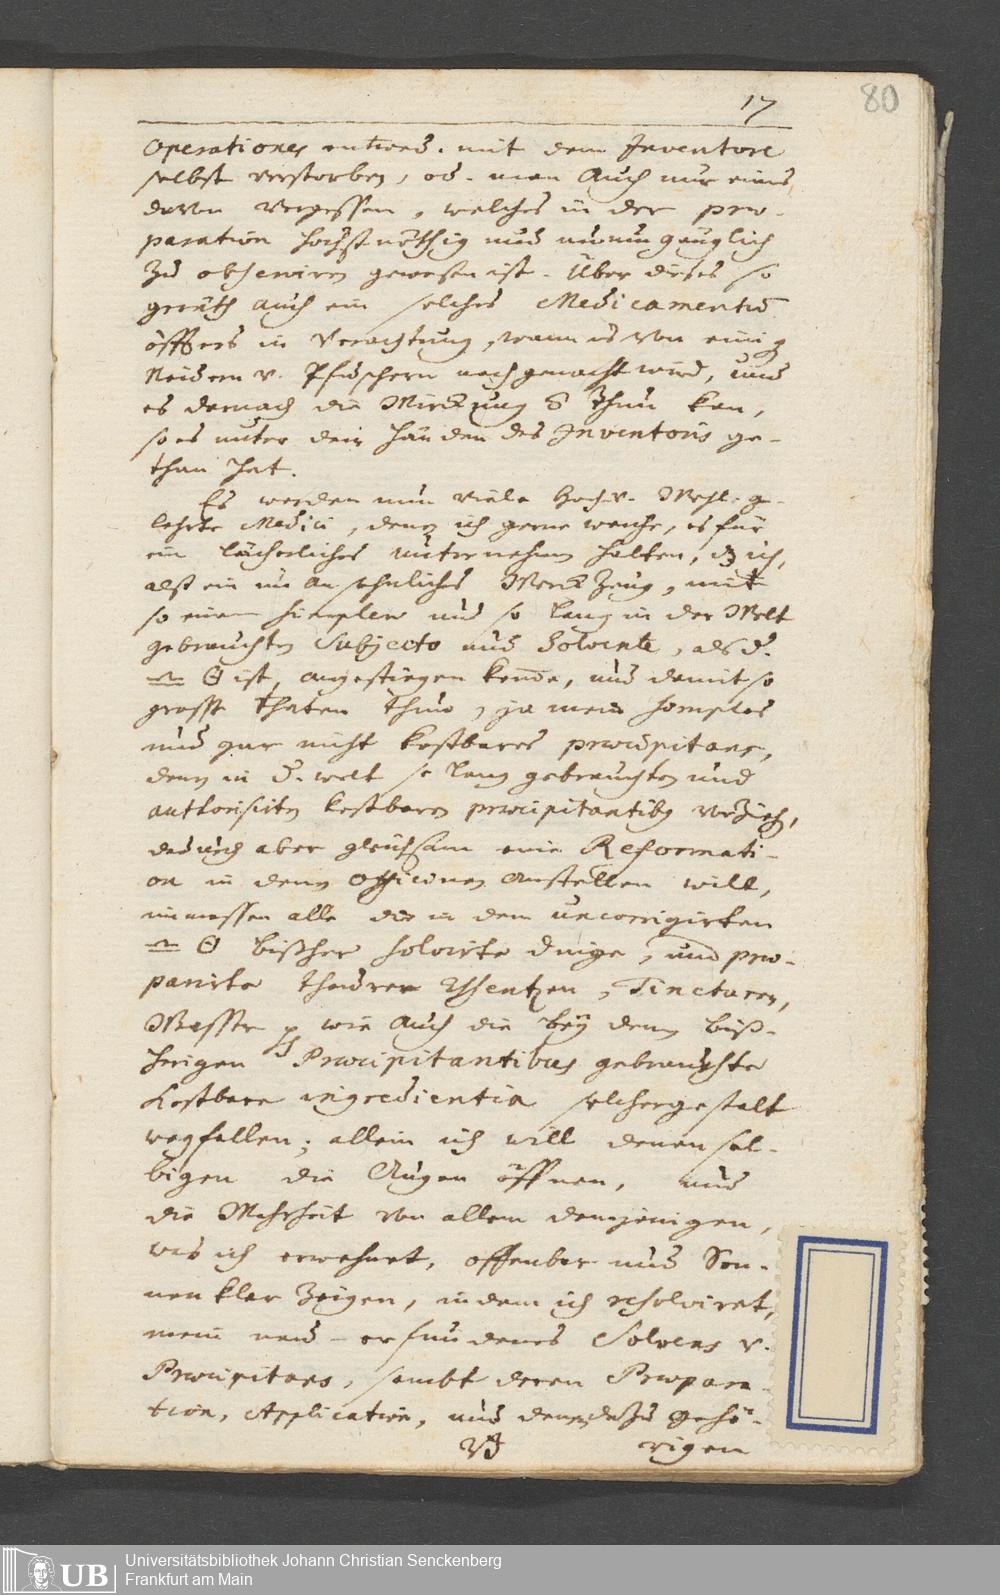 17
80
Operationes entwed. mit dem Inventore
selbst verstorben, od. man Auch nur eines
davon vergessen, welches in der præ-
paration höchstnöthig und unumgänglich
zu observiren gewesen ist. Über dieses so
geräth auch ein solches Medicamentū
öffters in Verachtung, wann es von einig
Neidern v. Pfuschern nachgemacht wird, und
es darnach die Würckung thun kan,
so es unter den Händen des Inventoris ge-
than hat.
Es werden nun viele Hoch v. Wohl-ge-
lehrte Medici, denen ich gerne weiche, es für
ein lächerliches unternehmen halten, dz ich,
alß ein unansehnliches Werckzeug, mit
so einem simplen und so lang in der Welt
gebrauchten Subjecto und Solvente, als d.
ist, angestiegen komme, und damit so
grosse thaten thun, ja mein simples
und gar nicht kostbares præcipitans,
denen in d. welt so lang gebrauchten und
authorisirten kostbaren præcipitantibus vorzieh,
dadurch aber gleichsam eine Reformati-
on in denen Officinen Anstellen will,
immassen alle die in dem uncorrigirten
bißher solvirte Dinge, und præ-
parirte theure Essentzen, Tincturen,
Wasser wie Auch die bey denen biß-
herigen Præcipitantibus gebrauchte
Kostbare ingredientia solchergestalt
wegfallen; allein ich will denensel-
bigen die Augen öffnen, und
die Wahrheit von allem demjenigen,
was ich erwehnet, offenbar und Son-
nenklar zeigen, indem ich resolviret,
mein neu-erfundenes Solvens v.
Præcipitans, sambt deren Præpara-
tion, Application, und denen dazu gehö-
rigen
Universitätsbibliothek Johann Christian Senckenberg
Frankfurt am Main
UB